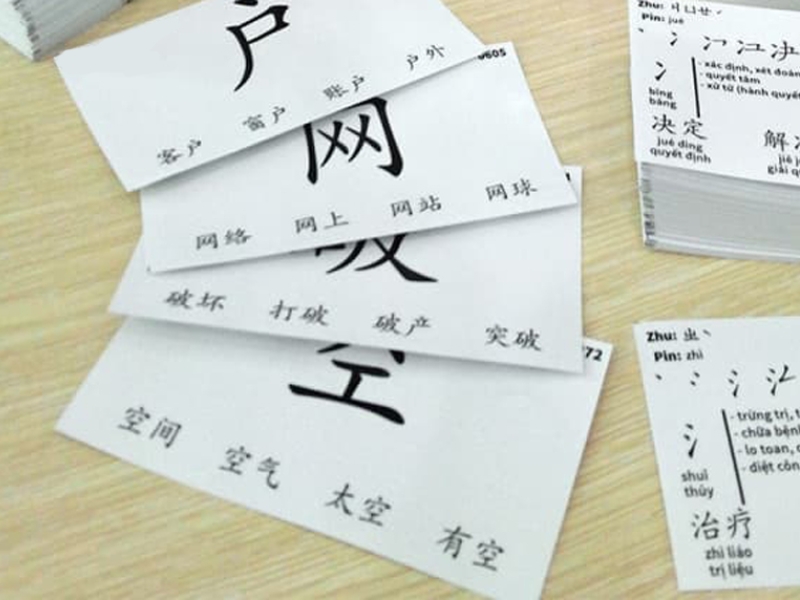 户
客户 窗户 账户 户外
0605
网
网络 网上 网站 网球
破
破坏 打破 破产 突破
72
空
空间 空气 太空 有空
Zhu: ㄐㄩㄝˊ
Pin: jué
冫
bīng
băng
- xác định, xét đoán
- quyết tâm
- xử tử (hành quyết
决定
jué dìng
quyết định
解
giải
Zhu: ㄓˋ
Pin: zhì
氵
shuǐ
thủy
- trừng trị,
- chữa bệnh
- lo toan,
- diệt côn
治疗
zhì liáo
trị liệu